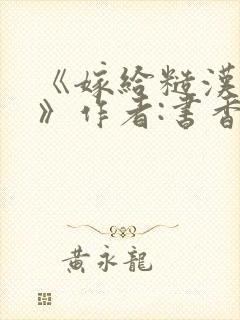 《嫁给糙汉
》作者:书香
黄永龙